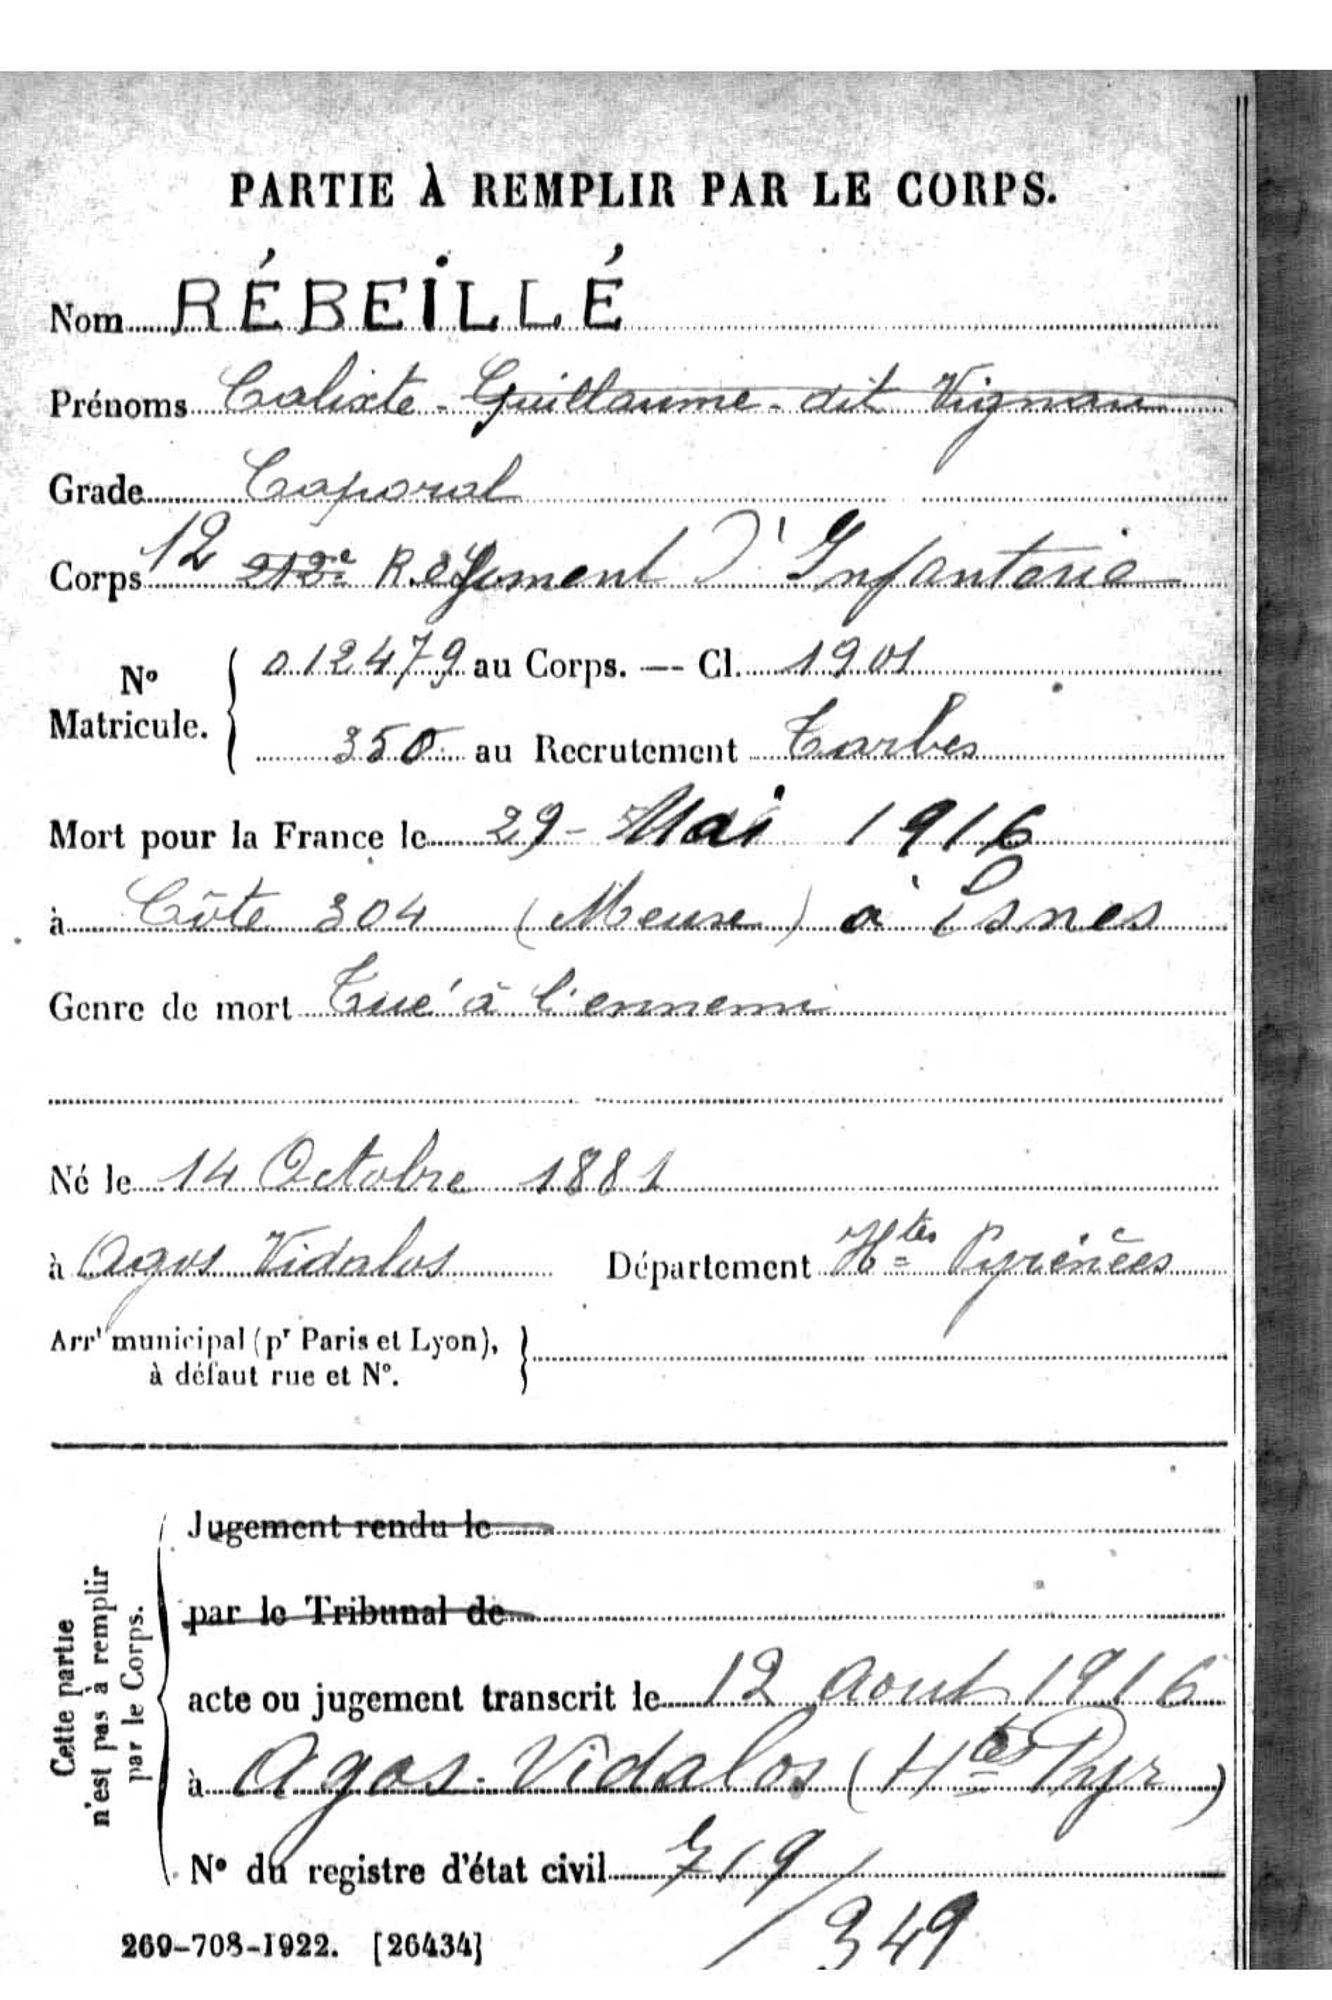 PARTIE À REMPLIR PAR LE CORPS.
Nom RÉBEILLÉ
Prénoms Calixte - Guillaume - dit Vignau
Grade Caporal
Corps 12 212e Régiment d'Infanterie
No Matricule. { 012479 au Corps. — Cl. 1901
350 au Recrutement Tarbes
Mort pour la France le 29 - Mai 1916
à Côte 304 (Meuse) à Esnes
Genre de mort Tué à l'ennemi
Né le 14 Octobre 1881
à Agos Vidalos Département Htes Pyrénées
Arrt municipal (pr Paris et Lyon),
à défaut rue et No.
Cette partie
n'est pas à remplir
par le Corps.
Jugement rendu le
par le Tribunal de
acte ou jugement transcrit le 12 Aout 1916
à Agos-Vidalos (Htes Pyr)
No du registre d'état civil 719/349
269-708-1922. [26434]